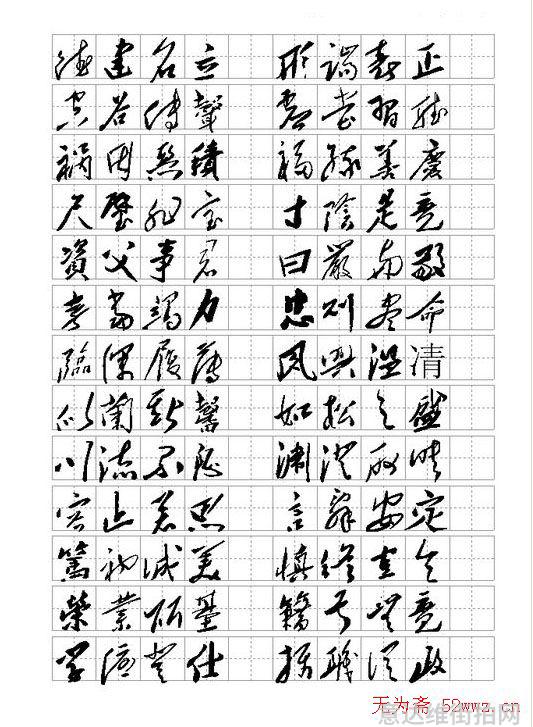 德建名立 形端表正
空谷传聲 虚堂習聽
禍因惡積 福緣善慶
尺璧非宝 寸陰是竞
資父事君 曰嚴与敬
孝當竭力 忠则盡命
臨深履薄 夙興温凊
似蘭斯馨 如松之盛
川流不息 渊澄取映
容止若思 言辭安定
篤初诚美 慎终宜令
榮業所基 籍甚無竟
学優登仕 攝職從政
无为斋 52wwz.cn
意达维街拍网